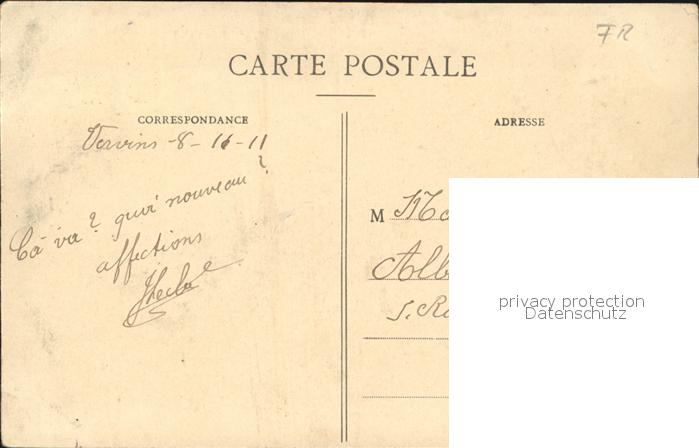 FR
CARTE POSTALE
CORRESPONDANCE
ADRESSE
Vervins - 8 - 11 - 11
Ça va? quoi nouveau?
affections
M
Alb
privacy protection
Datenschutz